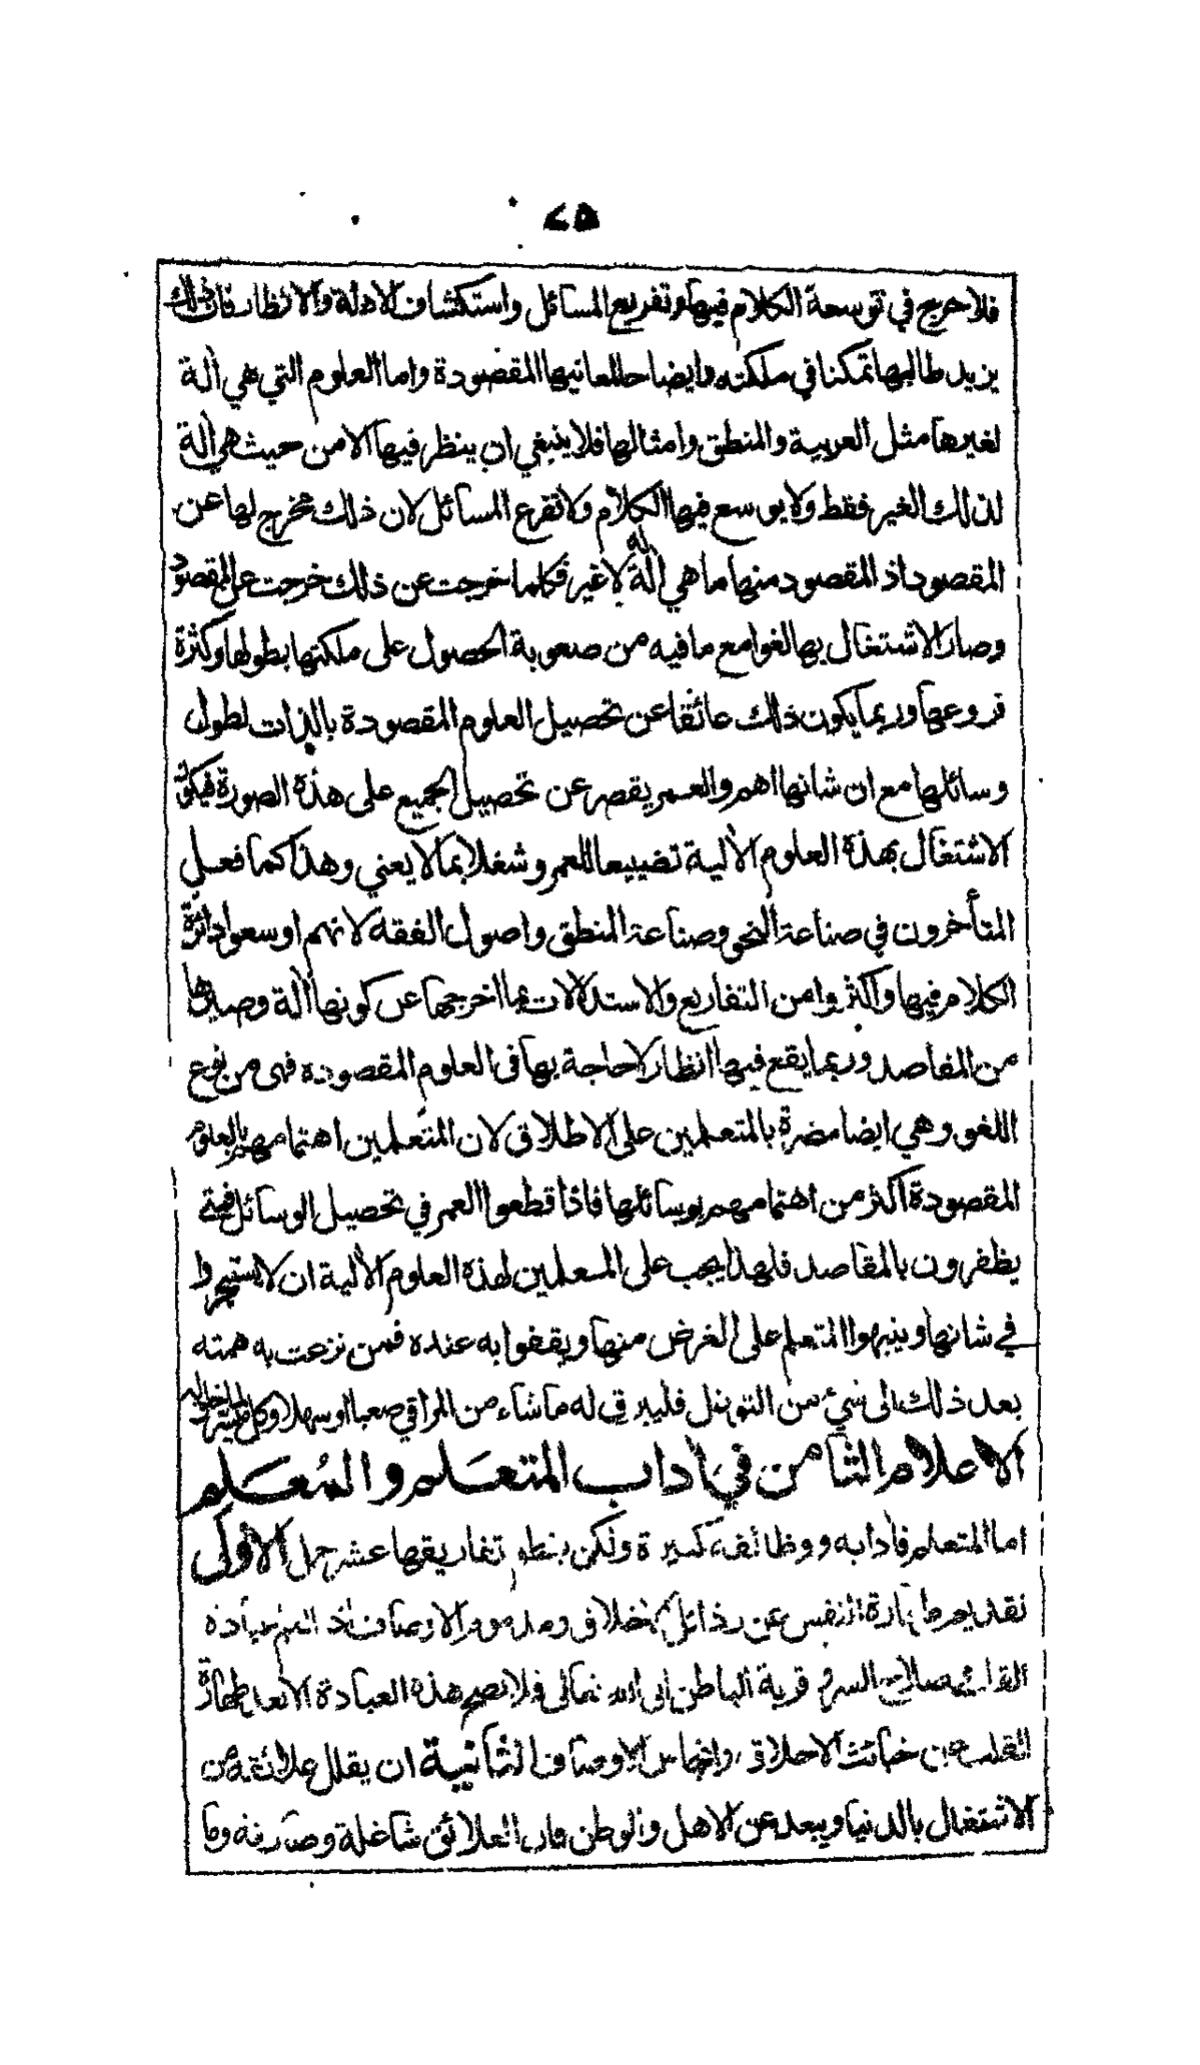 ٢٥
فلا حرج في توسعة الكلام فيها وتفريع المسائل واستكشاف الادلة والانظار فان ذلك
يزيد طالبها تمكنا في ملكته وايضاحا لمعانيها المقصودة واما العلوم التي هي آلة
لغيرها مثل العربية والمنطق وامثالها فلا ينبغي ان ينظر فيها الا من حيث هي آلة
لذلك الغير فقط ولا يوسع فيها الكلام ولا تفرع المسائل لان ذلك مخرج لها عن
المقصود اذ المقصود منها ما هي آلة له لا غير فكلما خرجت عن ذلك خرجت عن المقصود
وصار الاشتغال بها لغوا مع ما فيه من صعوبة الحصول على ملكتها بطولها وكثرة
فروعها وربما يكون ذلك عائقا عن تحصيل العلوم المقصودة بالذات لطول
وسائلها مع ان شانها اهم والعمر يقصر عن تحصيل الجميع على هذه الصورة فيكون
الاشتغال بهذه العلوم الآلية تضييعا للعمر وشغلا بما لا يعني وهذا كما فعل
المتأخرون في صناعة النحو وصناعة المنطق واصول الفقه لانهم اوسعوا دائرة
الكلام فيها واكثروا من التفاريع والاستدلالات بما اخرجها عن كونها آلة وصيرها
من المقاصد وربما يقع فيها انظار لا حاجة بها في العلوم المقصودة فهي من نوع
اللغو وهي ايضا مضرة بالمتعلمين على الاطلاق لان المتعلمين اهتمامهم بالعلوم
المقصودة اكثر من اهتمامهم بوسائلها فاذا قطعوا العمر في تحصيل الوسائل فمتى
يظفرون بالمقاصد فلهذا يجب على المعلمين لهذه العلوم الآلية ان لا يستبحروا
في شانها وينبهوا المتعلم على الغرض منها ويقفوا به عنده فمن نزعت به همته
بعد ذلك الى شيء من التوغل فليرق له ما شاء من المراقي صعبا او سهلا وكل ميسر لما خلق له
الاعلام الثامن في آداب المتعلم والمُعَلم
اما المتعلم فآدابه ووظائفه كثيرة ولكن ينظم تفاريقها عشر جمل الاولى
تقديم طهارة النفس عن رذائل الاخلاق ومذموم الاوصاف اذ العلم عبادة
القلب وصلاح السر وقربة الباطن الى الله تعالى فلا تصح هذه العبادة الا بعد طهارة
القلب عن خبائث الاخلاق وانجاس الاوصاف الثانية ان يقلل علائقه من
الاشتغال بالدنيا ويبعد عن الاهل والوطن فان العلائق شاغلة وصارفة وما